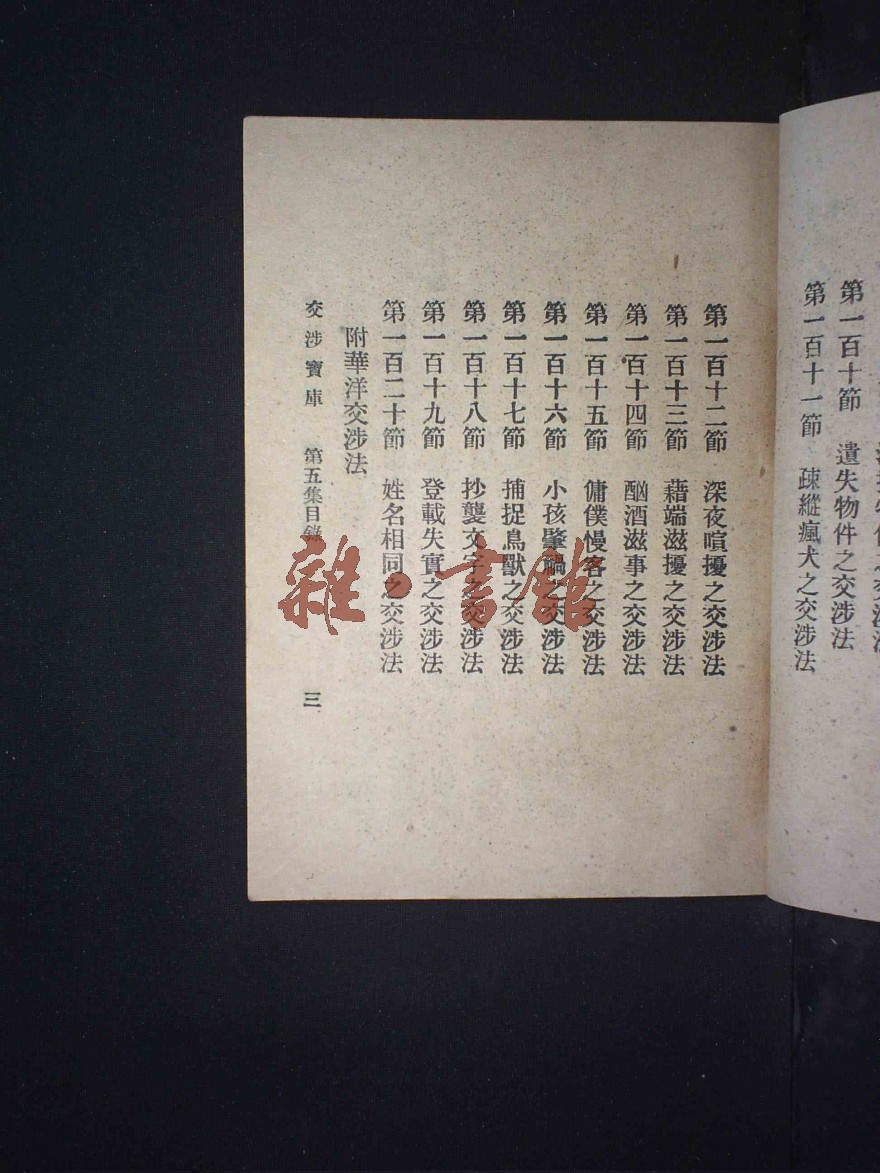 第一百十節　遺失物件之交涉法
第一百十一節　疎縱瘋犬之交涉法
第一百十二節　深夜喧擾之交涉法
第一百十三節　藉端滋擾之交涉法
第一百十四節　酗酒滋事之交涉法
第一百十五節　傭僕慢客之交涉法
第一百十六節　小孩肇禍之交涉法
第一百十七節　捕捉鳥獸之交涉法
第一百十八節　抄襲文字之交涉法
第一百十九節　登載失實之交涉法
第一百二十節　姓名相同之交涉法
附華洋交涉法
交涉寶庫　第五集目錄　三
雜·書館